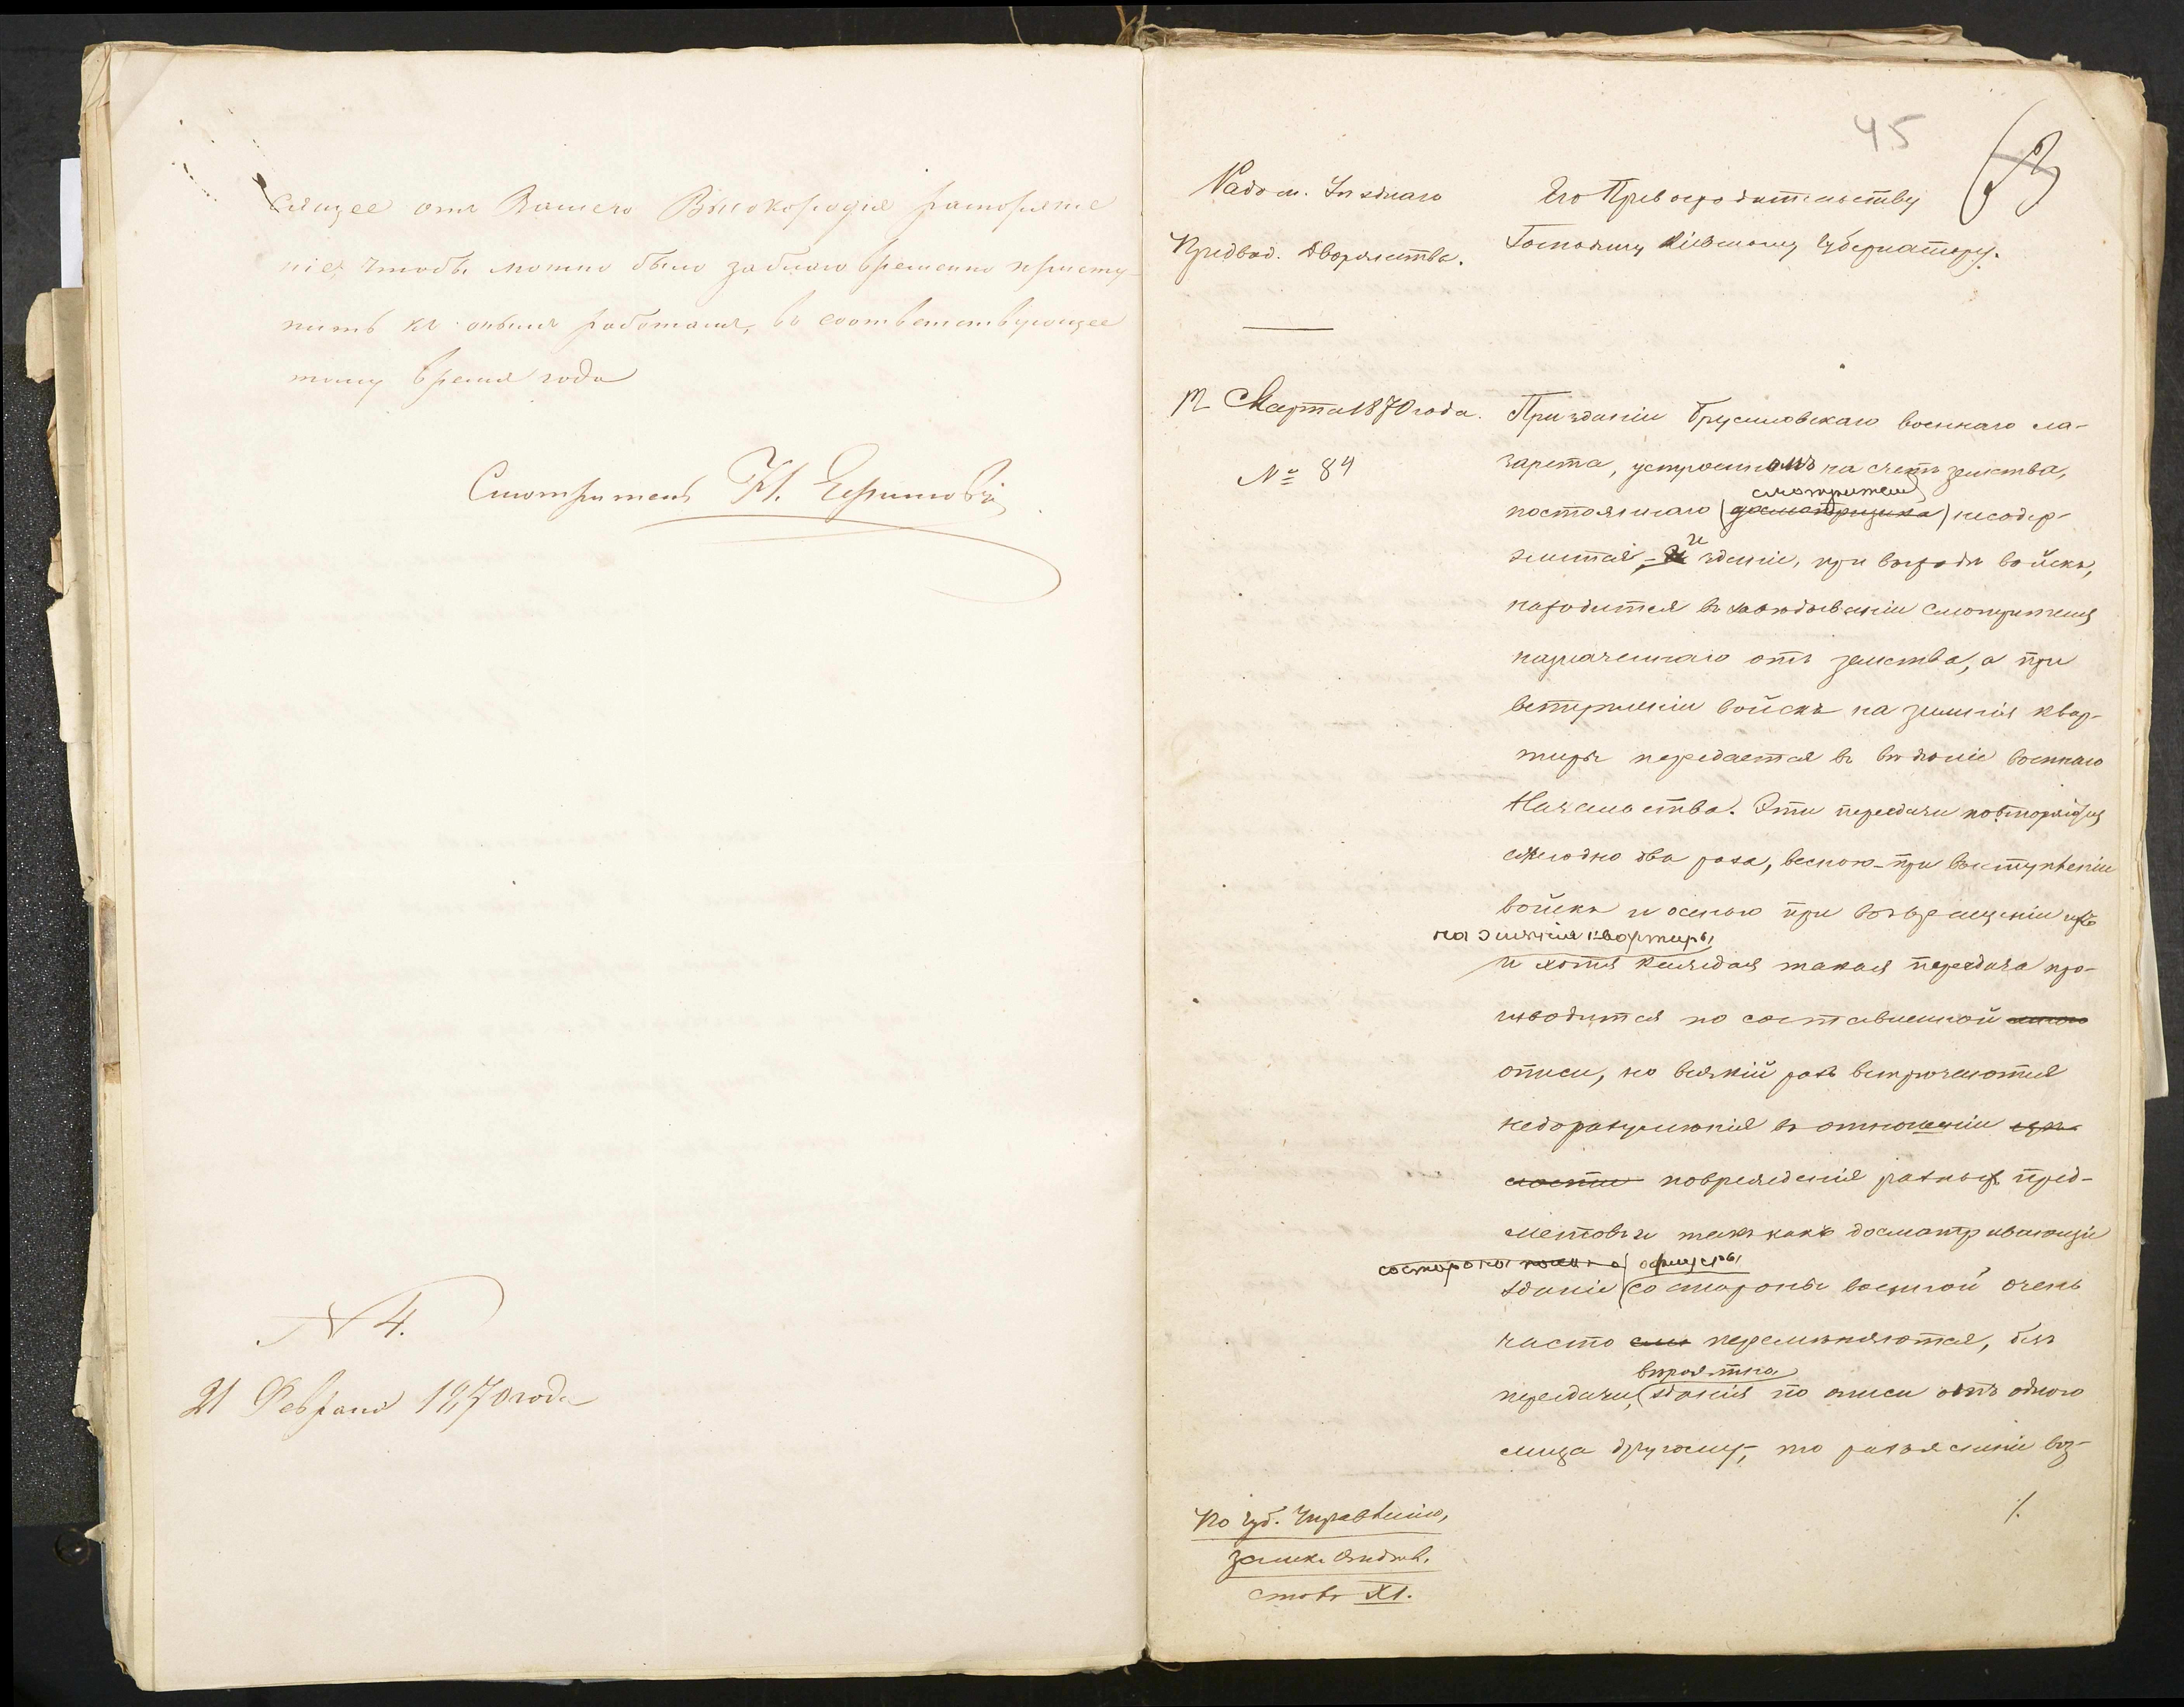 сящее отъ Вашего Высокородія распоряже
ніе, чтобы можно было заблаговременно присту-
пить къ онымъ работамъ, въ соответствующее
тому время года
Смотритель
N 4.
21 Февраля 1870 года
45
Радом. Уѣзднаго
Предвод. Дворянства.
Его Превосходительству
Господину Кіевскому Губернатору.
12 Марта 1870 года.
№ 84
При зданіи Брусиловскаго военнаго ла-
зарета, устроенномъ на счетъ земства,
смотрителя
постояннаго (досмотрщика) несодер-
жится, и зданіе, при выходѣ войскъ,
находится въ завѣдываніи смотрителя
назначеннаго отъ земства, а при
вступленіи войскъ на зимнія квар-
тиры передается въ вѣденіе военнаго
Начальства. Эти передачи повторяются
ежегодно два раза, весною - при выступленіи
войскъ и осенью при возвращеніи ихъ
на зимнія квартиры
и хотя каждая такая передача про-
изводится по составленной
описи, но всякій разъ встрѣчаются
недоразумѣнія въ отношеніи
поврежденія разныхъ пред-
метовъ и такъ какъ досматривающіе
офицеры
зданіе (со стороны военной очень
часто перемѣняются, безъ
вѣроятно
передачи, (зданія по описи отъ одного
лица другому, то разъясненіе воз-
По Губ. Управленію,
столъ XI.